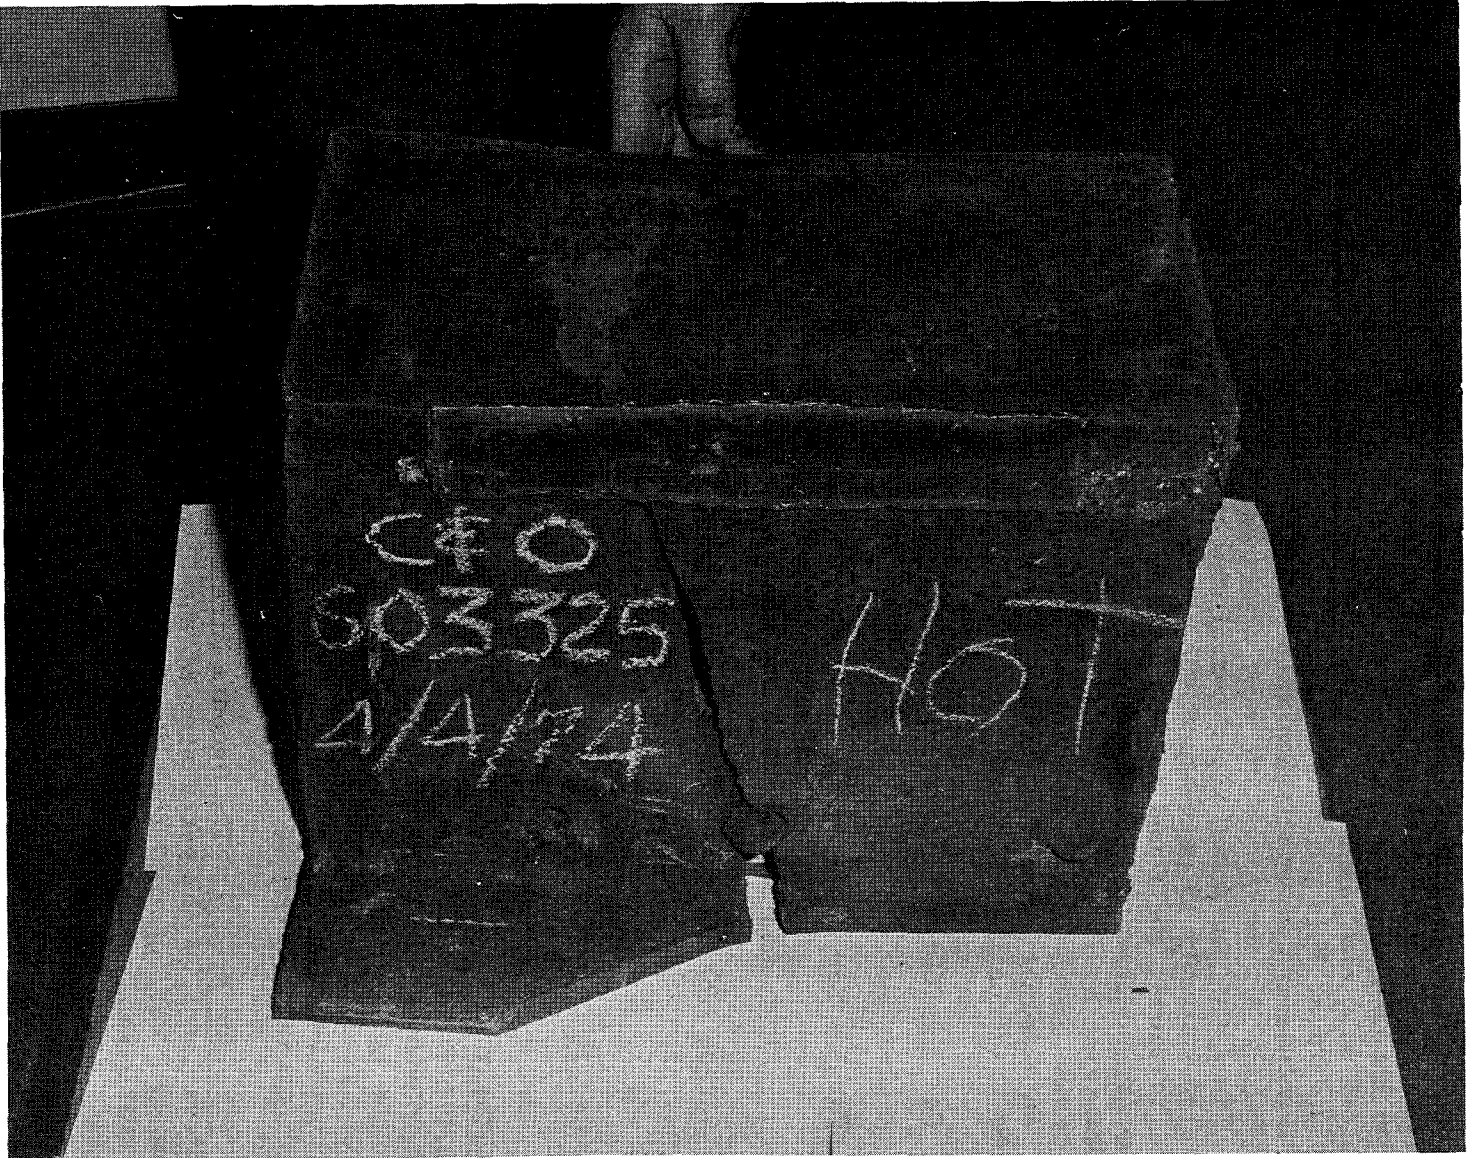 C&O
603325
4/4/74
HOT